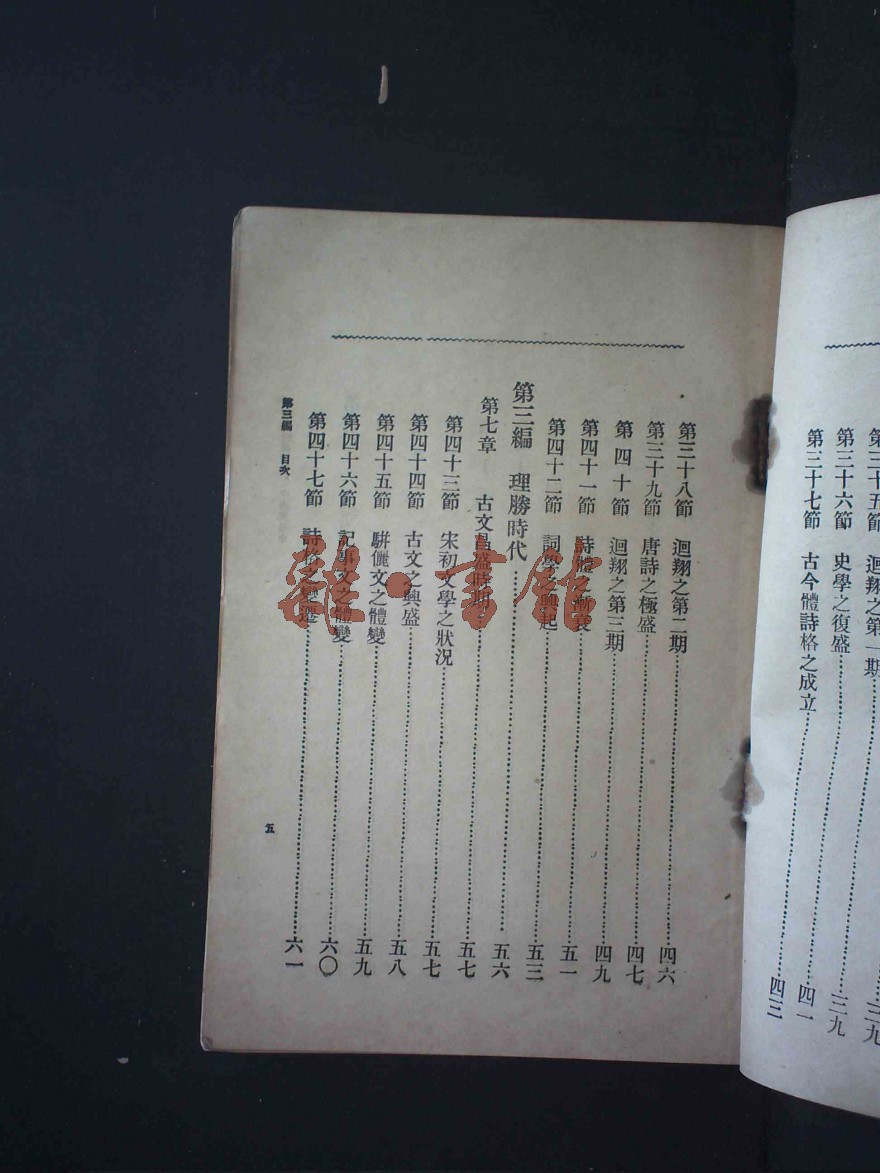 三九
第三十五節 迴翔之第一期……三九
第三十六節 史學之復盛……四一
第三十七節 古今體詩格之成立……四三
第三十八節 迴翔之第二期……四六
第三十九節 唐詩之極盛……四七
第四十節 迴翔之第三期……四九
第四十一節 詩體之漸衰……五一
第四十二節 詞學之興起……五三
第三編 理勝時代……五六
第七章 古文昌盛時期……五七
第四十三節 宋初文學之狀況……五七
第四十四節 古文之興盛……五八
第四十五節 駢儷文之體變……五九
第四十六節 記事文之體變……六〇
第四十七節 詩格之變遷……六一
第三編 目次
五
雜·書館